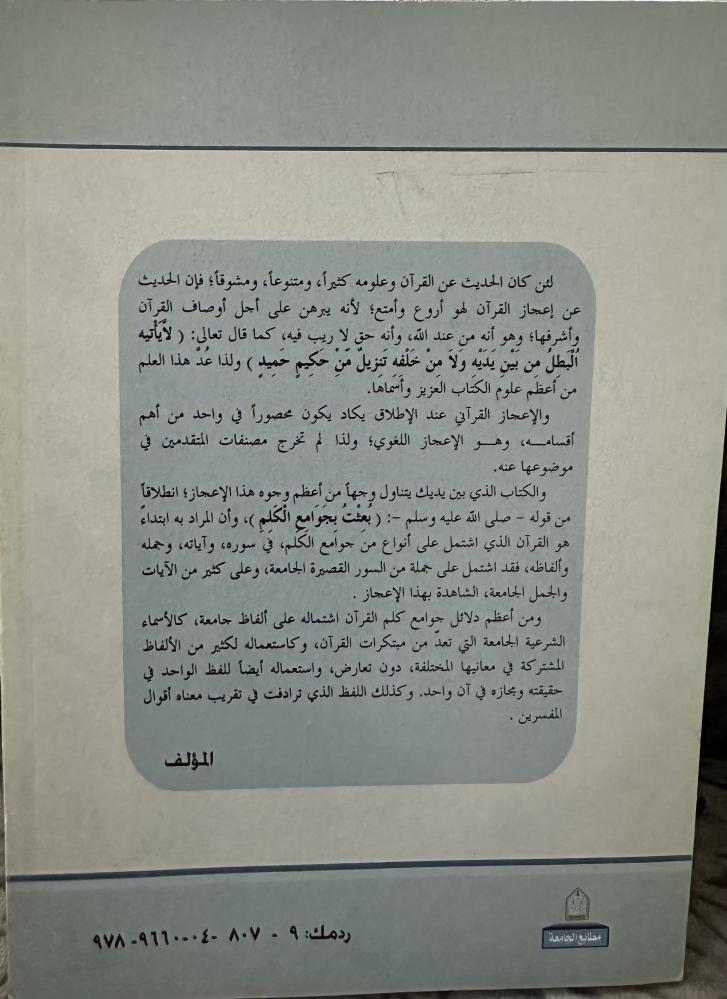 لئن كان الحديث عن القرآن وعلومه كثيراً، ومتنوعاً، ومشوقاً؛ فإن الحديث
عن إعجاز القرآن لهو أروع وأمتع؛ لأنه يبرهن على أجل أوصاف القرآن
وأشرفها؛ وهو أنه من عند الله، وأنه حق لا ريب فيه، كما قال تعالى: ( لَّايَأْتِيهِ
الْبَطِلُ مِن بَيْنِ يَدَيْهِ وَلَا مِنْ خَلْفِهِ تَنزِيلٌ مِّنْ حَكِيمٍ حَمِيدٍ ) ولذا عُدّ هذا العلم
من أعظم علوم الكتاب العزيز وأسماها.
والإعجاز القرآني عند الإطلاق يكاد يكون محصوراً في واحد من أهم
أقسامـــه، وهـــو الإعجاز اللغوي؛ ولذا لم تخرج مصنفات المتقدمين في
موضوعها عنه.
والكتاب الذي بين يديك يتناول وجهاً من أعظم وجوه هذا الإعجاز؛ انطلاقاً
من قوله – صلى الله عليه وسلم –: ( بُعِثْتُ بِجَوَامِعِ الْكَلِمِ )، وأن المراد به ابتداءً
هو القرآن الذي اشتمل على أنواع من جوامع الكلم، في سوره، وآياته، وجمله
وألفاظه، فقد اشتمل على جملة من السور القصيرة الجامعة، وعلى كثير من الآيات
والجمل الجامعة، الشاهدة بهذا الإعجاز .
ومن أعظم دلائل جوامع كلم القرآن اشتماله على ألفاظ جامعة، كالأسماء
الشرعية الجامعة التي تعدّ من مبتكرات القرآن، وكاستعماله لكثير من الألفاظ
المشتركة في معانيها المختلفة، دون تعارض، واستعماله أيضاً للفظ الواحد في
حقيقته ومجازه في آن واحد. وكذلك اللفظ الذي ترادفت في تقريب معناه أقوال
المفسرين .
المؤلف
مطابع الجامعة
ردمك: ٩ - ٨٠٧ -٠٤-٩٦٦٠-٩٧٨